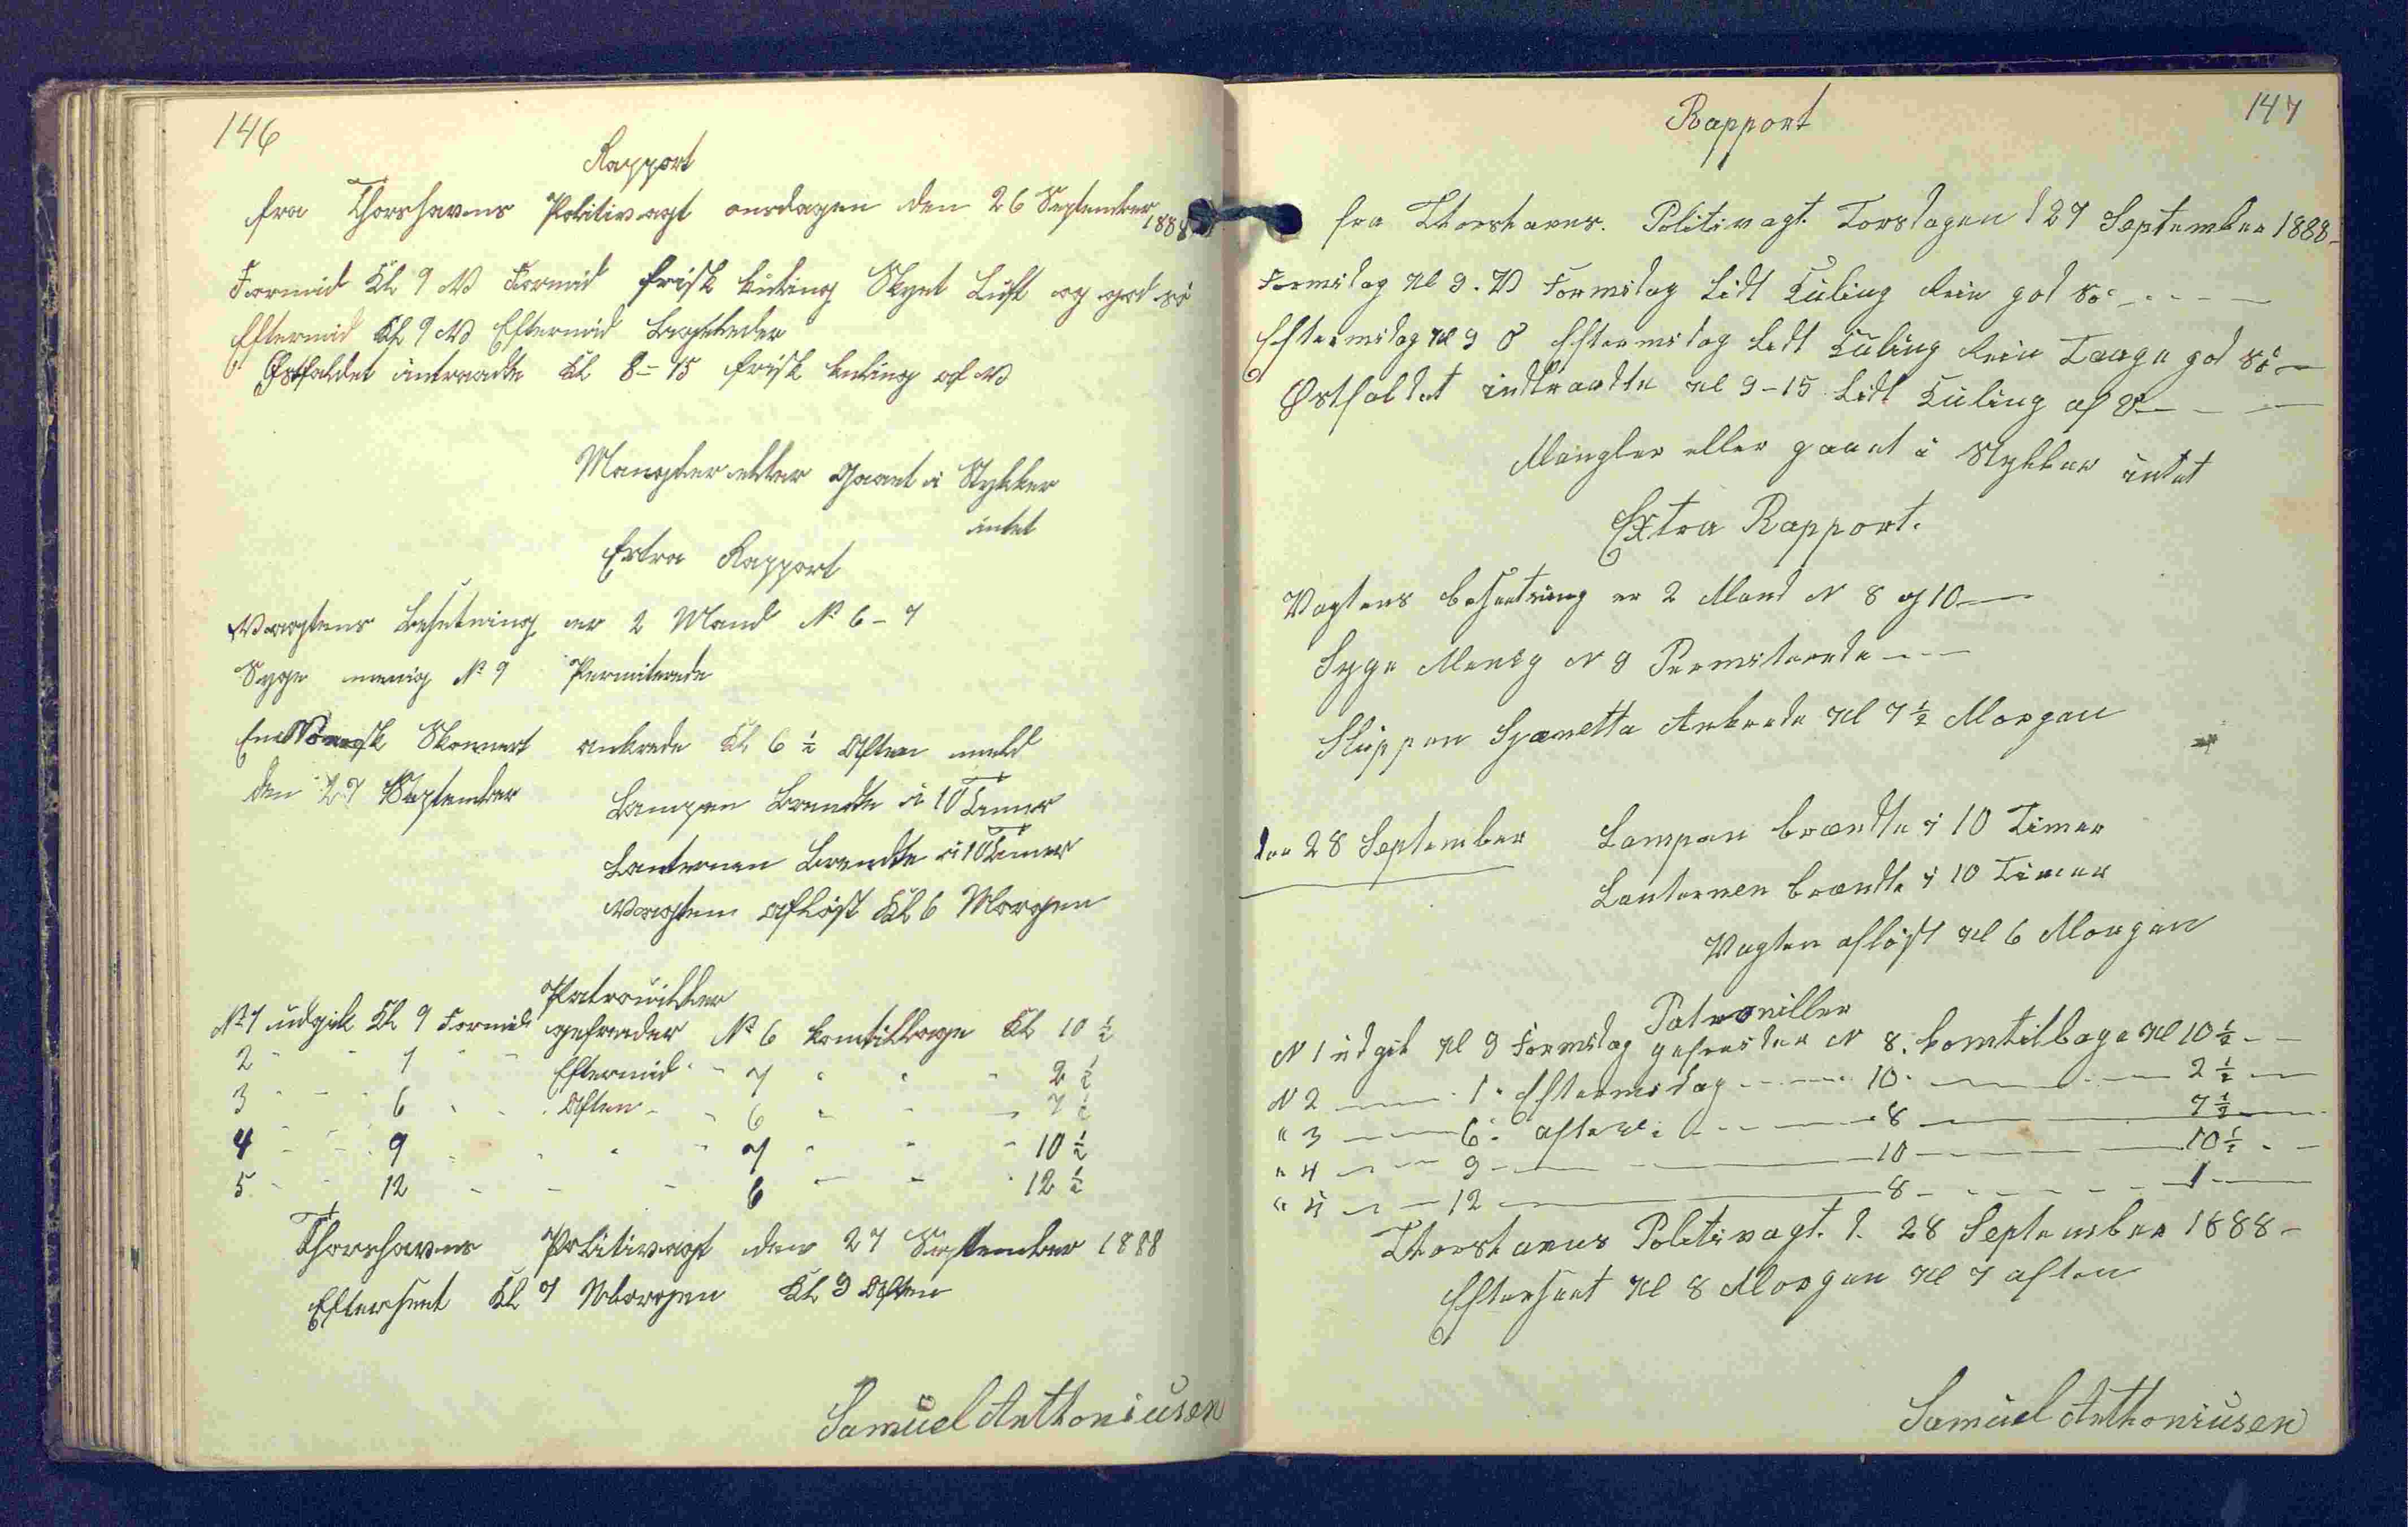 146
Rapport
fra Thorshavns Politivagt onsdagen den 26 September 1888
Formid Kl 9 V Formid frisk kuling Skyet Luft og god sö
Eftermid Kl 9 V Eftermid
Østfaldet intraadte Kl 8-15 frisk kuling af V
Mangler eller gaaet i Stykker
intet
Extra Rapport
Vagtens Besetning er 2 Mand No 6-7
Syge menig No 9 Permiterede
En Norsk Skonnert ankrede Kl 6 ½ Aften
den 27 September
Lampen Brendte i 10 Timer
Lanternen Brendte i 10 Timer
Vagten Aflöst Kl 6 Morgen
Patrouiller
No 1 udgik Kl 9 Formid gefreider No 6 kom tilbage Kl 10 ½
2 " 1 " Eftermid " 7 " 2 ½
3 " 6 " Aften " 6 " 7 ½
4 " 9 " 7 " 10 ½
5 " 12 " 6 " 12 ½
Thorshavns Politivagt den 27 September 1888
Efterseet Kl 7 Morgen Kl 9 Aften
Samuel Anthoniusen
147
Rapport
fra Thorshavns. Politivagt. Torsdagen d 27 September 1888-
Formidag Kl 9. V Formidag Lidt Kuling Rein god Sö - - - -
Eftermidag Kl 9 O Eftermidag Lidt Kuling Rein Taage god Sö -
Østfaldet indtraadte Kl 9-15 Lidt Kuling af O - - -
Mangler eller gaaet i Stykker intet
Extra Rapport.
Vagtens besætning er 2 Mand N 8 og 10 -
Syge Menig N 9 Permiterede - -
Sluppen Sjanetta Ankrede Kl 7 ½ Morgen
den 28 September Lampen brændte i 10 Timer
Lanternen brændte i 10 Timer
Vagten aflöst Kl 6 Morgen
Patrouiller
N 1 udgik Kl 9 Formidag gefreider N 8. kom tilbage Kl 10 ½ - -
N 2 - 1 " Eftermidag - - 10 - - 2 ½ -
" 3 - 6 " aften - - 8 - 7 ½ -
" 4 - 9 - - 10 - 10 ½ - -
" 5 - 12 - 8 - - 1 -
Thorshavns Politivagt. d. 28 September 1888-
Efterseet Kl 8 Morgen Kl 7 aften
Samuel Anthoniusen